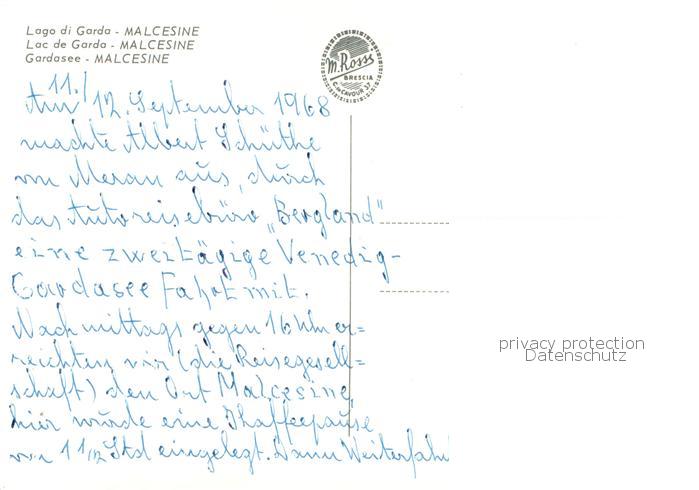 Lago di Garda - MALCESINE
Lac de Garda - MALCESINE
Gardasee - MALCESINE
M. Rossi
BRESCIA
C. CAVOUR 37
11./
Am 12. September 1968
machte Albert Schüthe
von Meran aus, durch
das Autoreisebüro „Bergland"
eine zweitägige Venedig-
Gardasee Fahrt mit.
Nachmittags gegen 16 Uhr er=
reichten wir (die Reisegesell=
schaft) den Ort Malcesine,
hier wurde eine Khaffeepause
von 1 1/2 Std eingelegt. Dann Weiterfah
privacy protection
Datenschutz